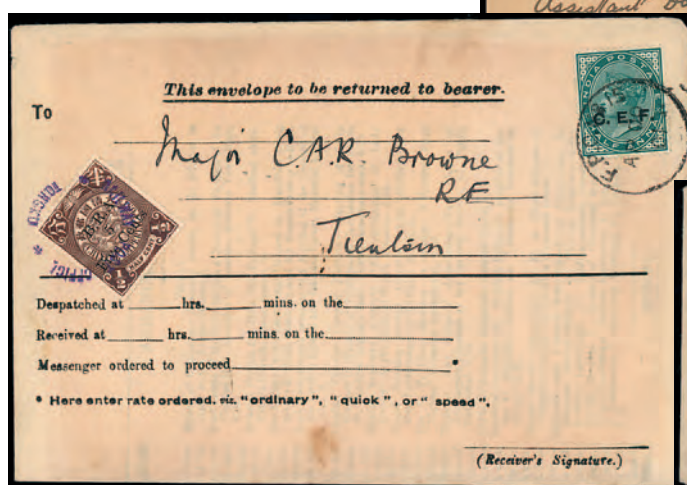 Assistant
This envelope to be returned to bearer.
To
Major C.A.R. Browne
RE
Tientsin
INDIA POSTAGE
C. E. F
HALF ANNA
B.R.A.
5
Five Cents
1/2
HALF CENT
1/2
Despatched at ______hrs.______mins. on the______
Received at ______hrs.______mins. on the______
Messenger ordered to proceed______*
* Here enter rate ordered, viz. "ordinary", "quick", or "speed".
(Receiver's Signature.)